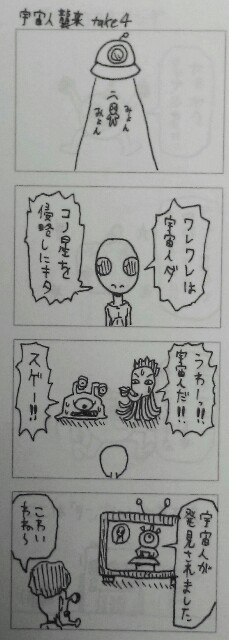 宇宙人襲来 take4
みょん
みょん
ワレワレは
宇宙人ダ
コノ星を
侵略しにキタ
うわーっ!!
宇宙人だ!!
スゲー!!
宇宙人が
発見されました
こわい
わねぇ